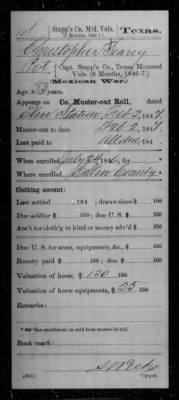 S | Stapp's Co. Mtd. Vols. (6 Months, 1846-7.) | Texas.
Christopher
(Capt. Stapp's Co., Texas Mounted Vols. (6 Months, 1846-7.)
Mexican War.
Age years.
Appears on
Co. Muster-out Roll, dated
Station Feb 2, 1847.
Muster-out to date Feb 2, 1847.
Last paid to
When enrolled July 24, 1846
Where enrolled County
Clothing account:
Last settled , 184 ; drawn since $ 100
Due soldier $ 100; due U. S. $ 100
Am't for cloth'g in kind or money adv'd $ 100
Due U. S. for arms, equipments, &c., $ 100
Bounty paid $ 100; due $ 100
Valuation of horse, $ 120 100
Valuation of horse equipments, $ 25 100
Remarks:
* See enrollment on card from muster-in roll.
Book mark:
Copyist.